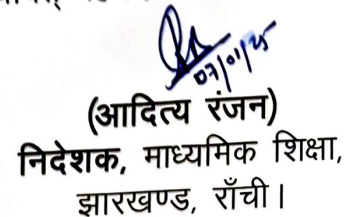 07/01/25
(आदित्य रंजन)
निदेशक, माध्यमिक शिक्षा,
झारखण्ड, राँची।